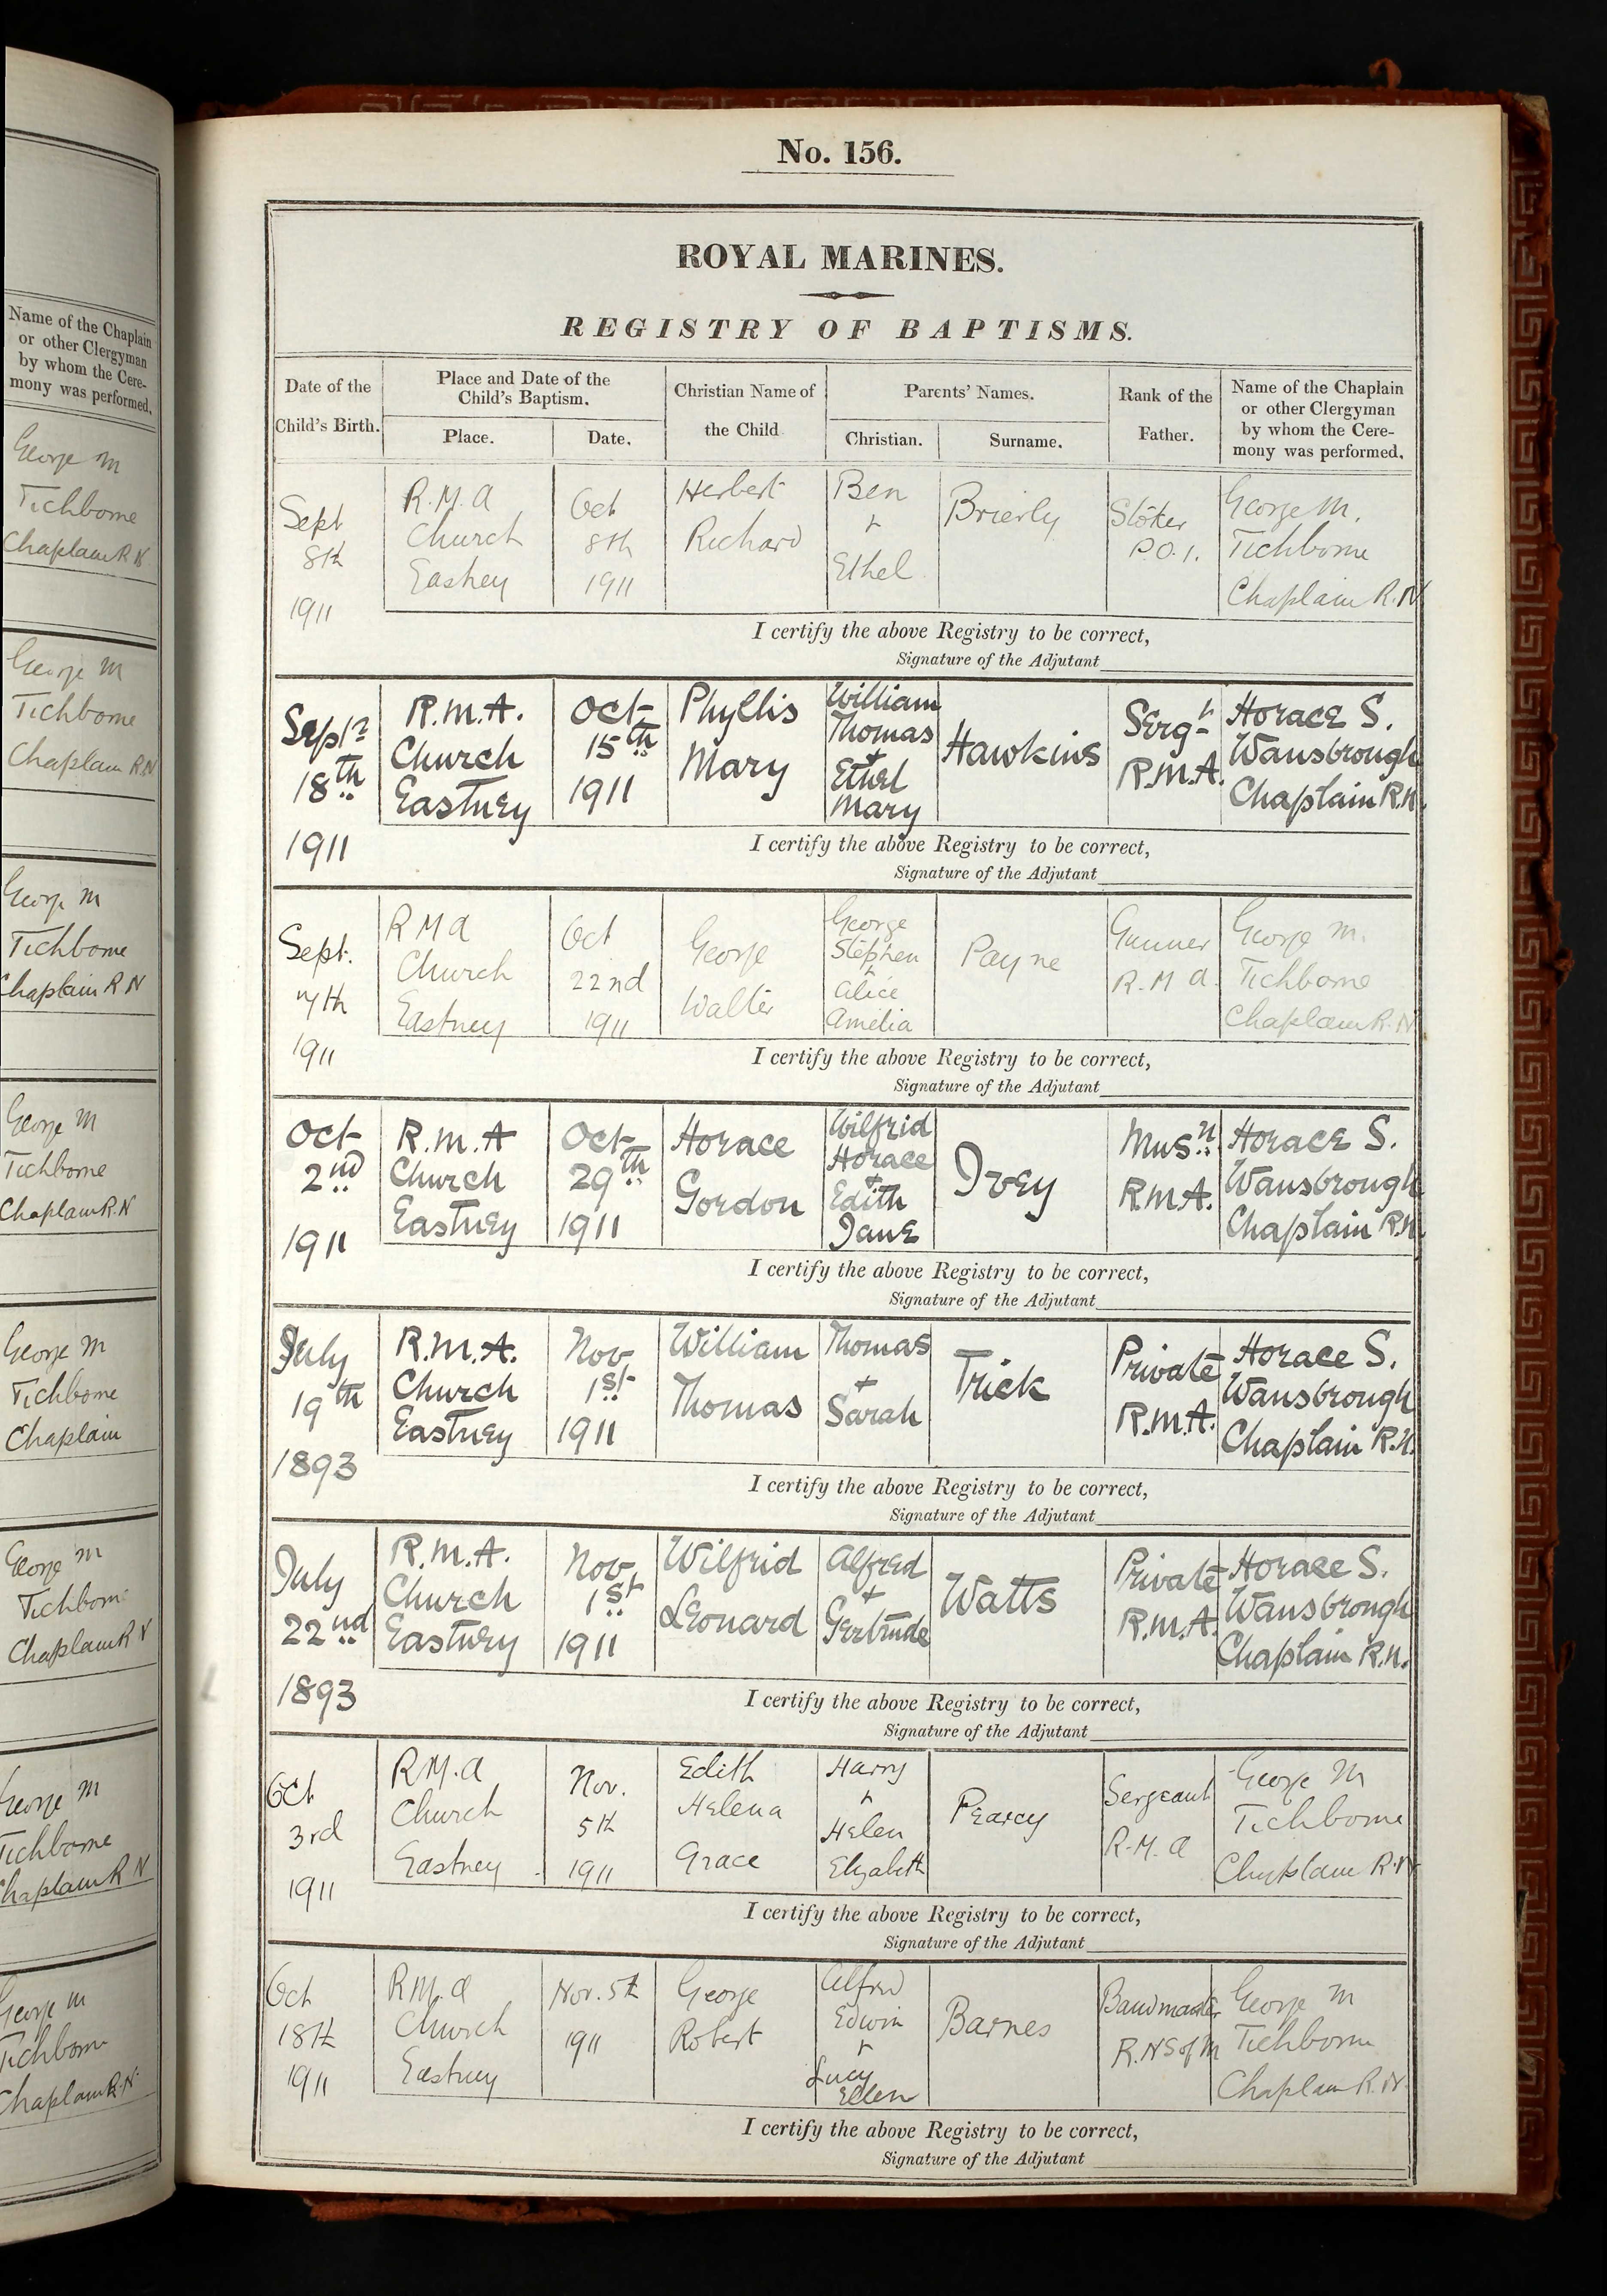 Name of the Chaplain
or other Clergyman
by whom the Cere-
mony was performed.
George M
Tichborne
Chaplain R N
George M
Tichborne
Chaplain R.N
George M
Tichborne
Chaplain R N
George M
Tichborne
Chaplain R.N
George M
Tichborne
Chaplain
George M
Tichborne
Chaplain R N
George M
Tichborne
Chaplain R N
George M
Tichborne
Chaplain R.N.
No. 156.
ROYAL MARINES.
REGISTRY OF BAPTISMS.
Date of the
Child's Birth.
Place and Date of the
Child's Baptism.
Place.
Date.
Christian Name of
the Child
Parents' Names.
Christian.
Surname.
Rank of the
Father.
Name of the Chaplain
or other Clergyman
by whom the Cere-
mony was performed.
Sept
8th
1911
R.M.A
Church
Eastney
Oct
8th
1911
Herbert
Richard
Ben
+
Ethel
Brierly
Stoker
P.O.1.
George M.
Tichborne
Chaplain R.N
I certify the above Registry to be correct,
Signature of the Adjutant
Sept
18th
1911
R.M.A.
Church
Eastney
Oct
15th
1911
Phyllis
Mary
William
Thomas
+
Ethel
Mary
Hawkins
Sergt
R.M.A.
Horace S.
Wansbrough
Chaplain R.N.
I certify the above Registry to be correct,
Signature of the Adjutant
Sept.
7th
1911
R M A
Church
Eastney
Oct
22nd
1911
George
Walter
George
Stephen
+
Alice
Amelia
Payne
Gunner
R.M A.
George M.
Tichborne
Chaplain R.N
I certify the above Registry to be correct,
Signature of the Adjutant
Oct
2nd
1911
R.M.A
Church
Eastney
Oct
29th
1911
Horace
Gordon
Wilfrid
Horace
+
Edith
Jane
Ivey
Musn
R.M.A.
Horace S.
Wansbrough
Chaplain R.N.
I certify the above Registry to be correct,
Signature of the Adjutant
July
19th
1893
R.M.A.
Church
Eastney
Nov
1st
1911
William
Thomas
Thomas
+
Sarah
Trick
Private
R.M.A.
Horace S.
Wansbrough
Chaplain R.N.
I certify the above Registry to be correct,
Signature of the Adjutant
July
22nd
1893
R.M.A.
Church
Eastney
Nov
1st
1911
Wilfrid
Leonard
Alfred
+
Gertrude
Watts
Private
R.M.A.
Horace S.
Wansbrough
Chaplain R.N.
I certify the above Registry to be correct,
Signature of the Adjutant
Oct
3rd
1911
R.M.A
Church
Eastney
Nov.
5th
1911
Edith
Helena
Grace
Harry
+
Helen
Elizabeth
Pearcy
Sergeant
R.M.A
George M
Tichborne
Chaplain R.N
I certify the above Registry to be correct,
Signature of the Adjutant
Oct
18th
1911
R.M.A
Church
Eastney
Nov. 5th
1911
George
Robert
Alfred
Edwin
+
Lucy
Ellen
Barnes
Bandmaster
R.N S of M
George M
Tichborne
Chaplain R.N.
I certify the above Registry to be correct,
Signature of the Adjutant